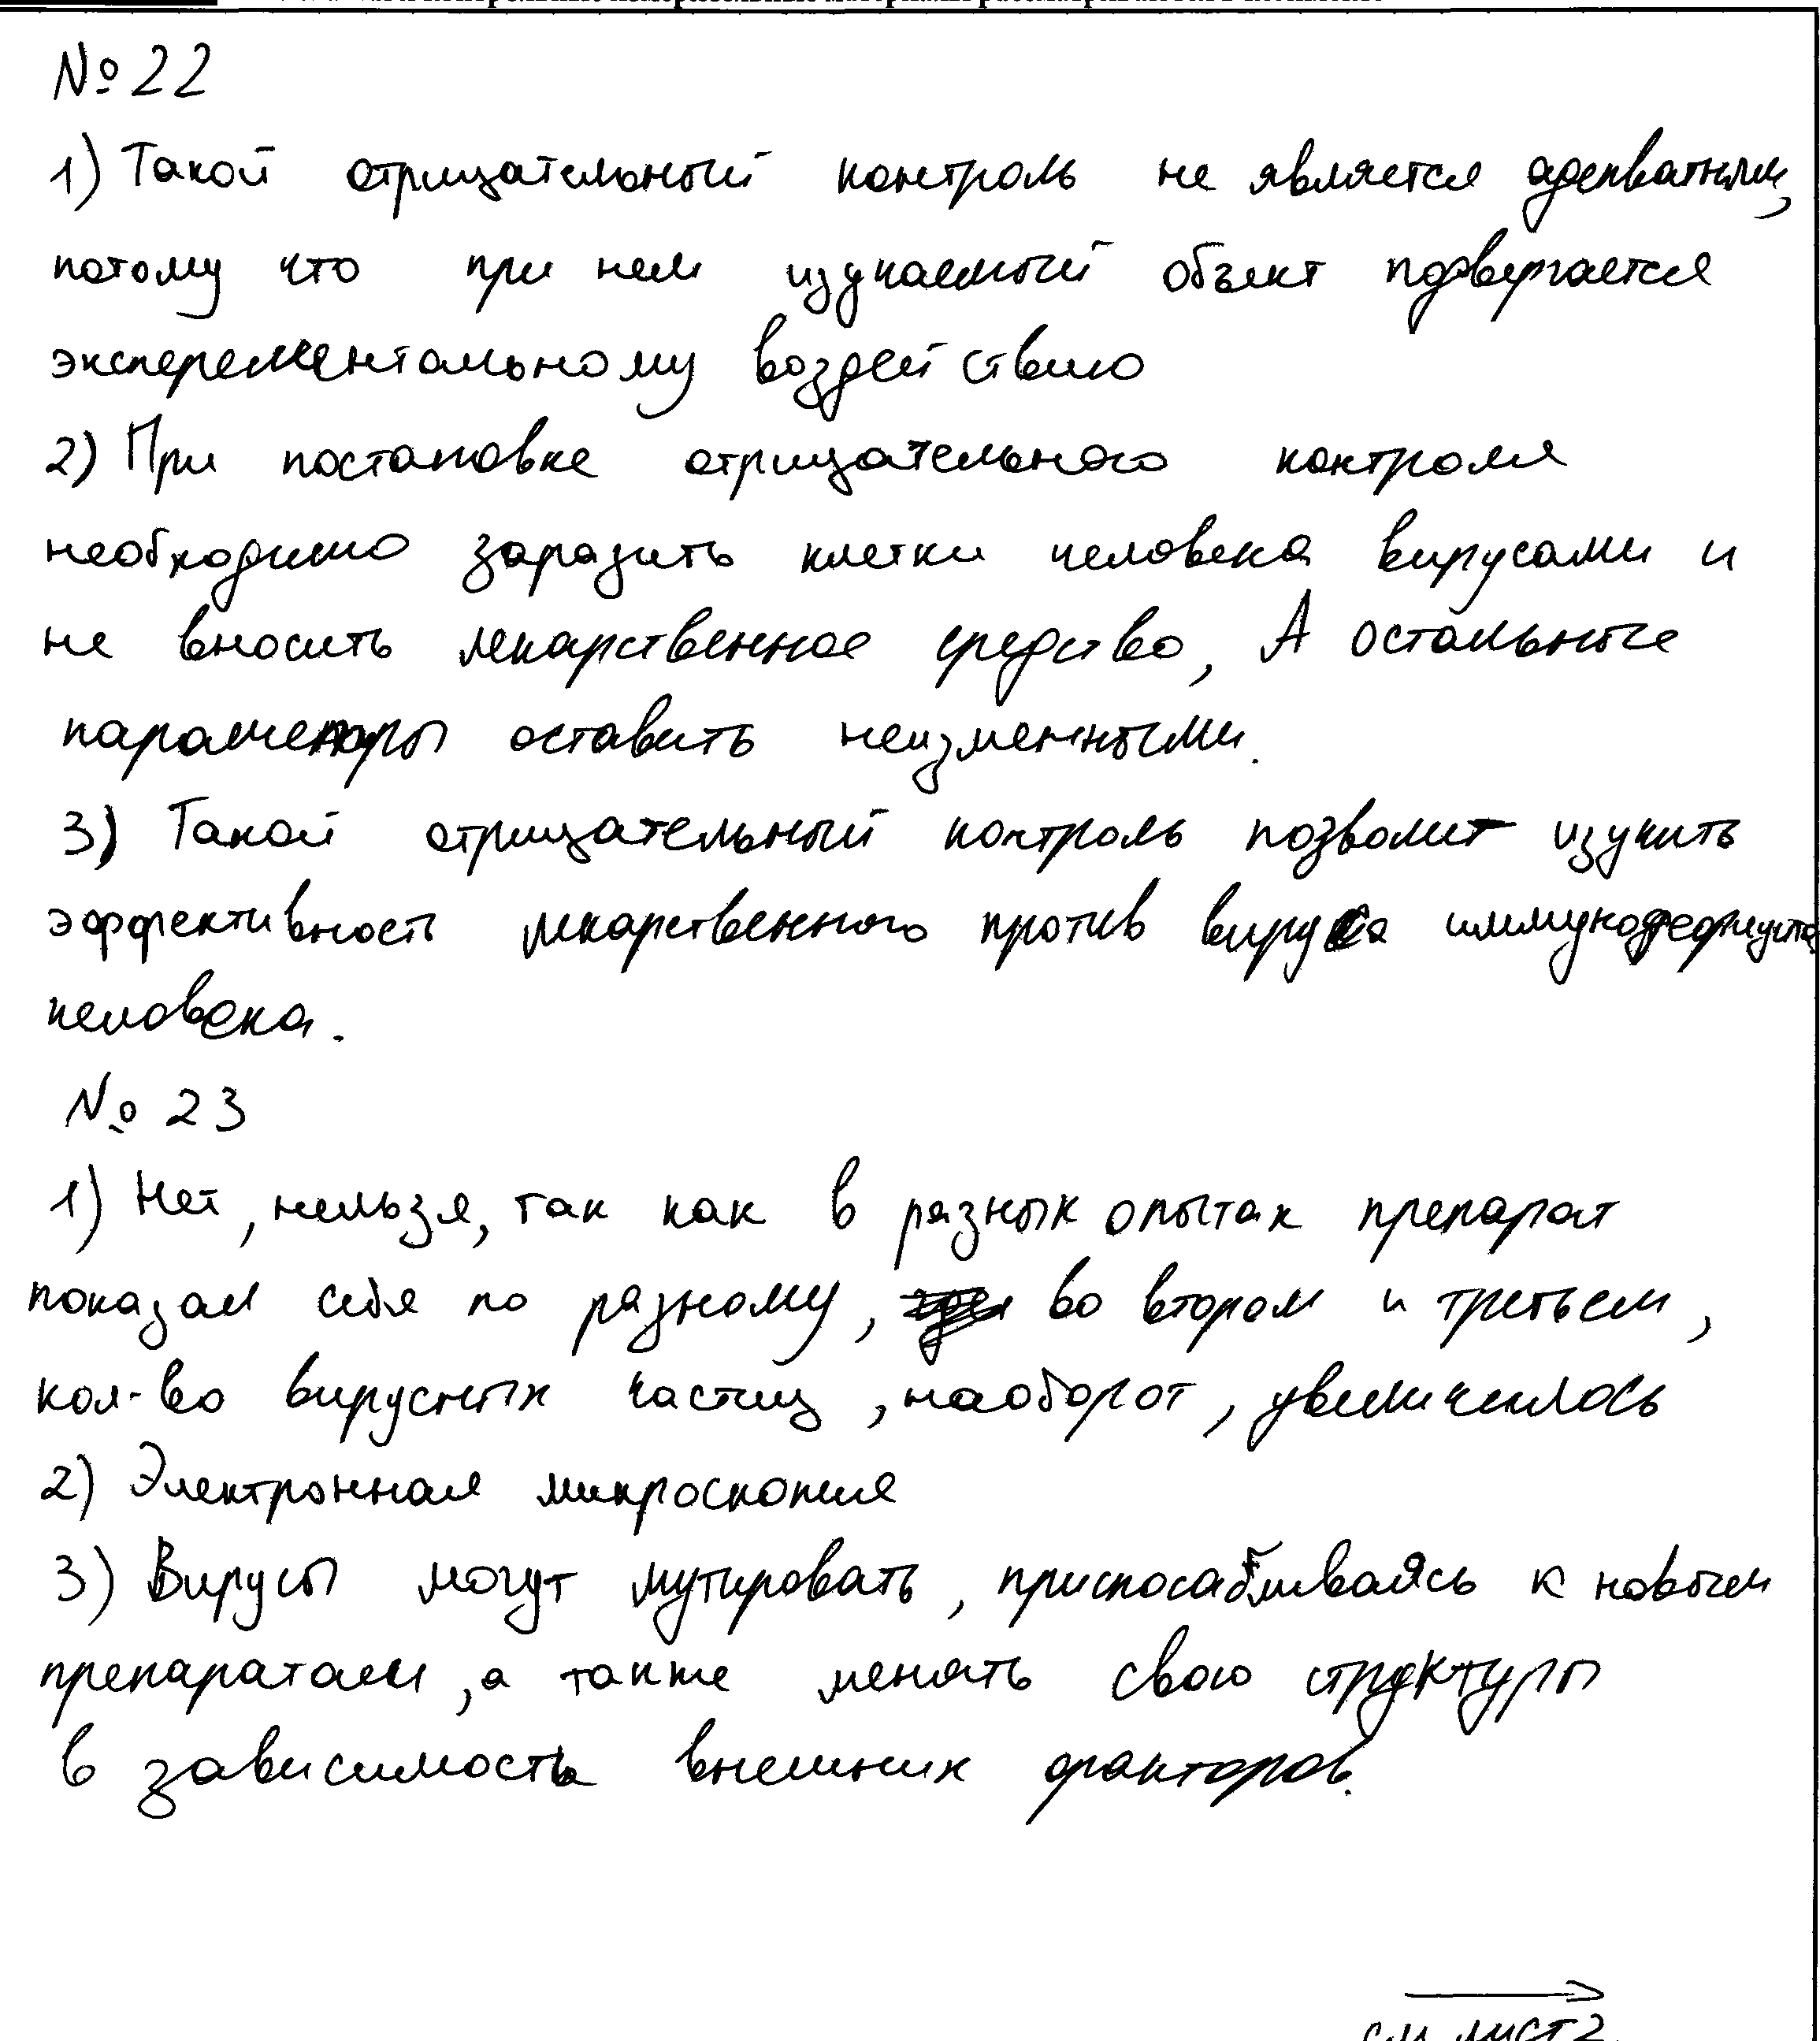 № 22
1) Такой отрицательный контроль не является адекватным,
потому что при нем изучаемый объект подвергается
эксперементальному воздействию
2) При постановке отрицательного контроля
необходимо заразить клетки человека вирусами и
не вносить лекарственное средство, А остальные
параметры оставить неизменными.
3) Такой отрицательный контроль позволит изучить
эффективность лекарственного против вируса иммунодефицита
человека.
№ 23
1) Нет, нельзя, так как в разных опытах препарат
показал себя по разному, во втором и третьем,
кол-во вирусных частиц, наоборот, увеличилось
2) Электронная микроскопия
3) Вирусы могут мутировать, приспосабливаясь к новым
препаратам, а также менять свою структуры
в зависимость внешних факторов.
см лист 2